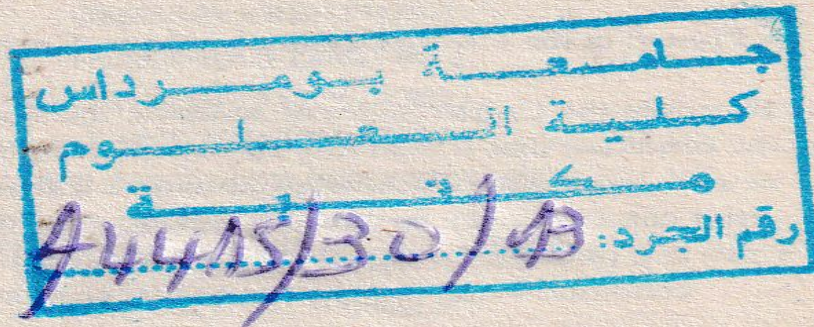 جامعة بومرداس
كلية العلوم
مكتبة
رقم الجرد: A4415/30/13